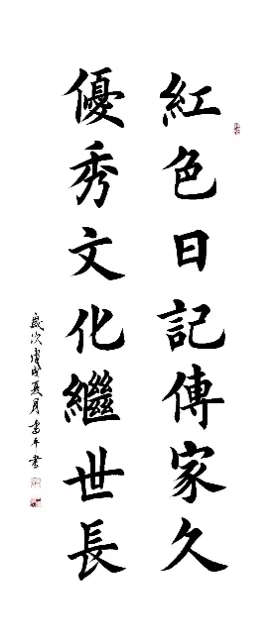 紅色日記傳家久
優秀文化繼世長
歲次戊戌夏月雷平書